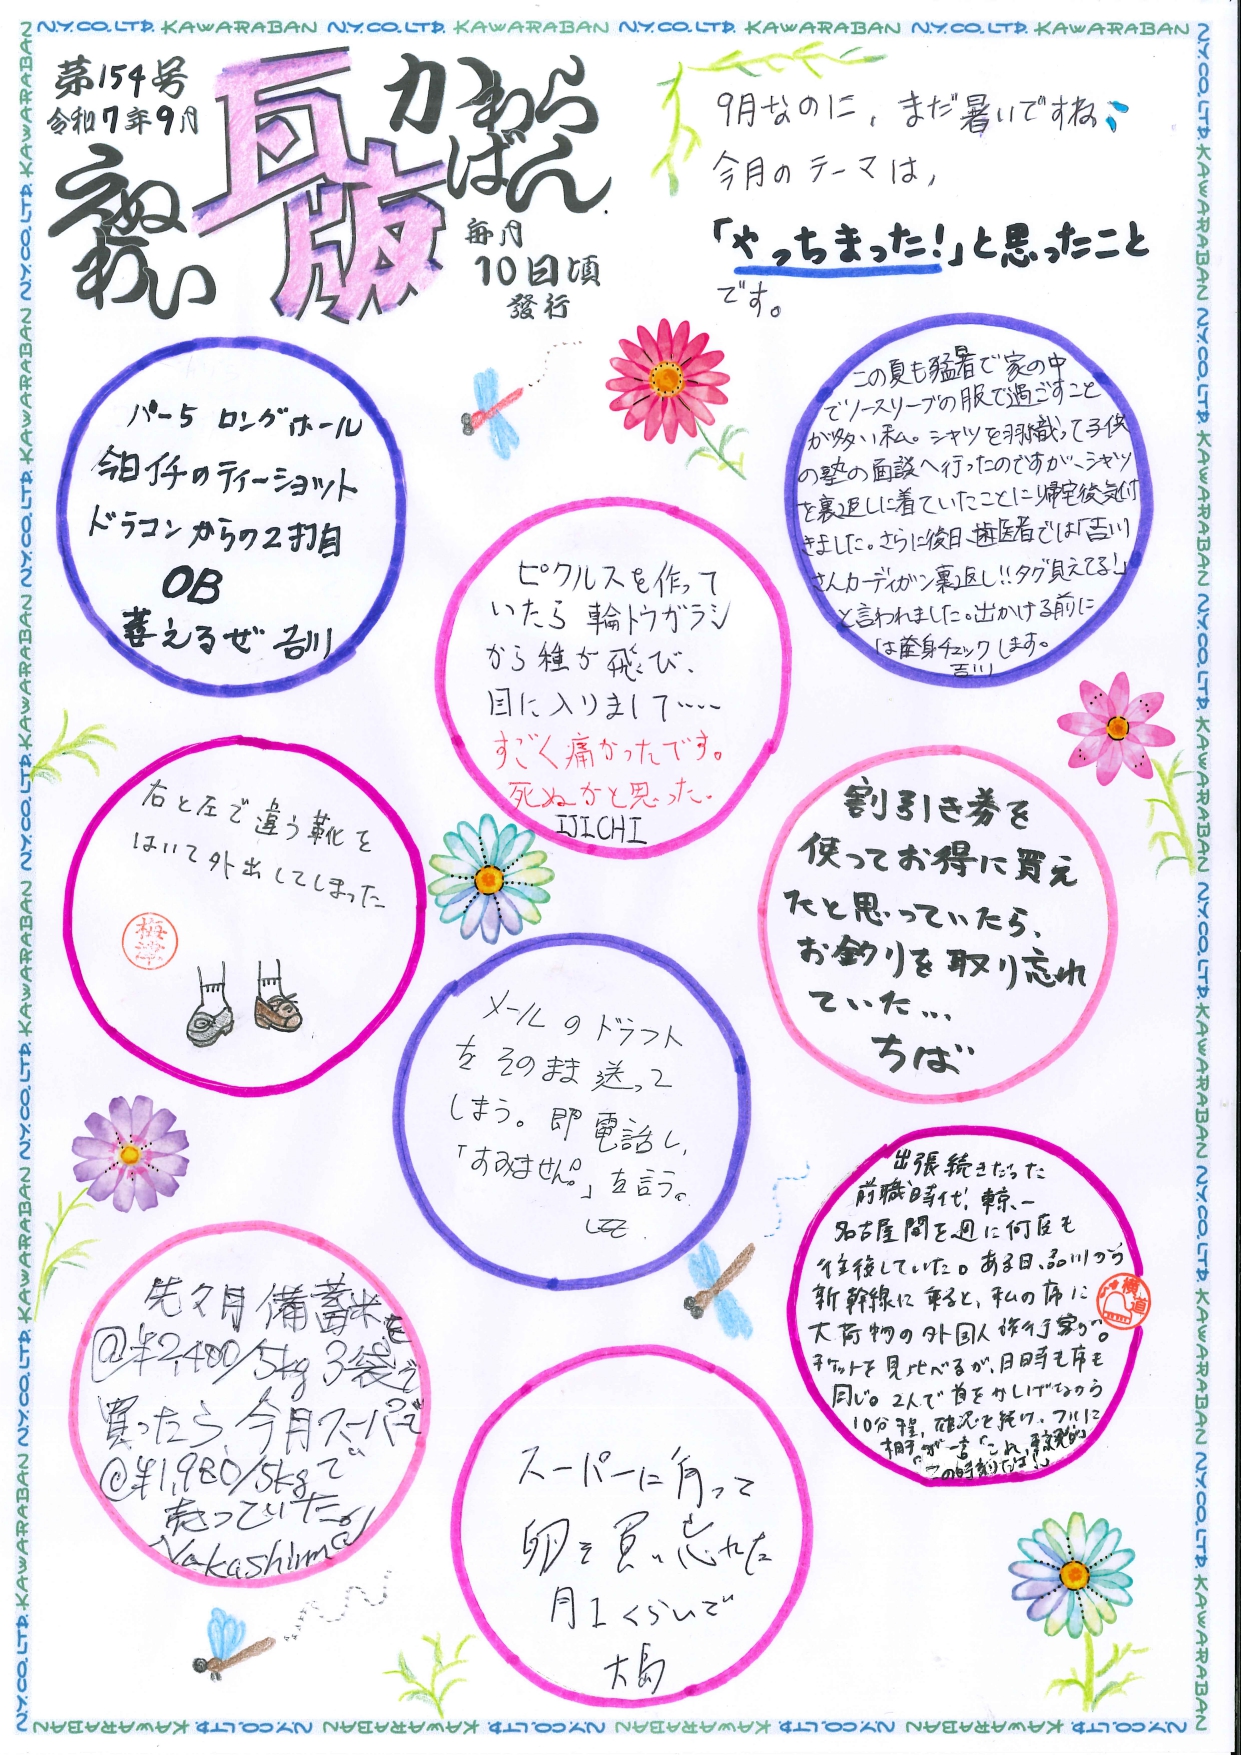 N.Y.CO.LTD. KAWARABAN N.Y.CO.LTD. KAWARABAN N.Y.CO.LTD. KAWARABAN N.Y.CO.LTD. KAWARABAN
第154号
令和7年9月
えぬわい
瓦版
かわらばん
毎月
10日頃
發行
9月なのに、まだ暑いですね
今月のテーマは、
「やっちまった!」と思ったこと
です。
パー5 ロングホール
今日イチのティーショット
ドラコンからの2打目
OB
萎えるぜ 吉川
この夏も猛暑で家の中
でノースリーブの服で過ごすこと
が多い私。シャツを羽織って子供
の塾の面談へ行ったのですが、シャツ
を裏返しに着ていたことに帰宅後気付
きました。さらに後日、歯医者では「吉川
さんカーディガン裏返し!!タグ見えてる!」
と言われました。出かける前に
は全身チェックします。
吉川
ピクルスを作って
いたら輪トウガラシ
から種が飛び、
目に入りまして‥‥
すごく痛かったです。
死ぬかと思った。
IJICHI
右と左で違う靴を
はいて外出してしまった
梅澤
割引き券を
使ってお得に買え
たと思っていたら、
お釣りを取り忘れ
ていた...
ちば
メールのドラフト
をそのまま送って
しまう。即電話し、
「すみません。」を言う。
出張続きだった
前職時代、東京ー
名古屋間を週に何度も
往復していた。ある日、品川から
新幹線に乗ると、私の席に
大荷物の外国人旅行客が。
チケットを見比べるが、日時も席も
同じ。2人で首をかしげながら
10分程、確認を続け、フルに
相手が一言「これ、東京発の
この時刻だよ!」
横道
先々月備蓄米を
@¥2,400/5kg 3袋で
買ったら、今月スーパーで
@¥1,980/5kgで
売っていた。
Nakashima
スーパーに行って
卵を買い忘れた
月1くらいで
大島
N.Y.CO.LTD. KAWARABAN N.Y.CO.LTD. KAWARABAN N.Y.CO.LTD. KAWARABAN N.Y.CO.LTD. KAWARABAN